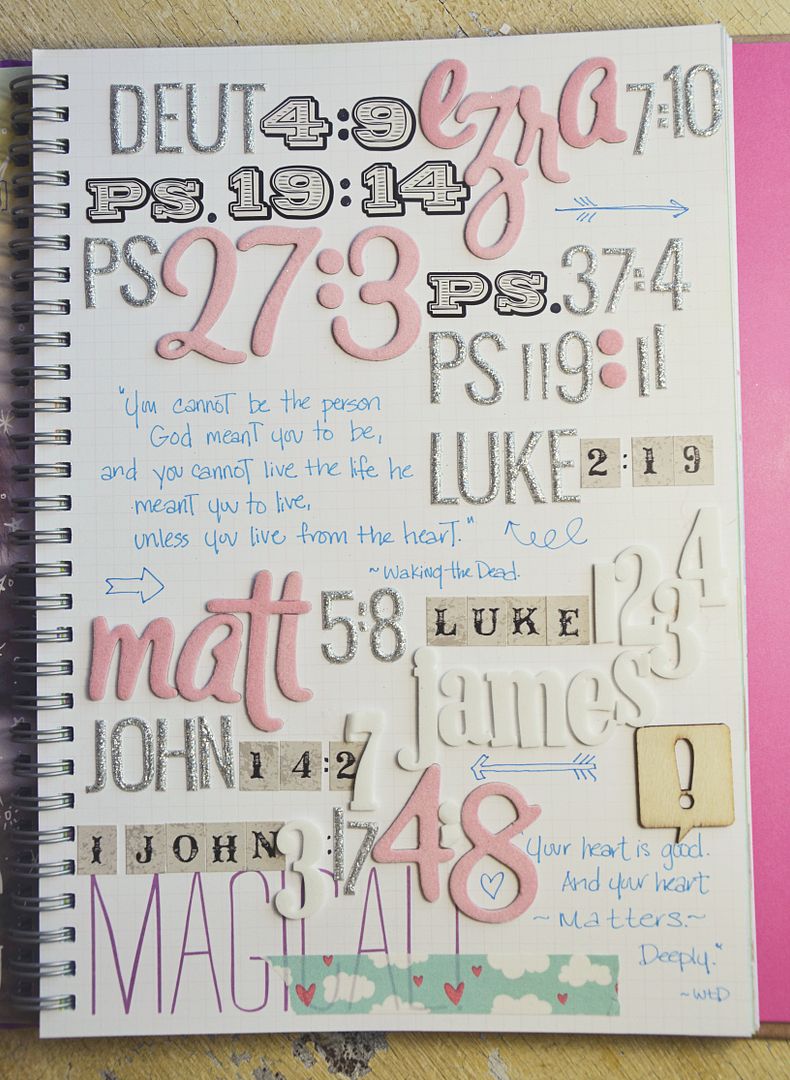 DEUT 4:9 ezra 7:10
PS. 19:14
PS 27:3 PS. 37:4
PS 119:11
LUKE 2:19
"You cannot be the person
God meant you to be,
and you cannot live the life he
meant you to live,
unless you live from the heart."
~Waking the Dead.
matt 5:8 LUKE 12 34
james 4:8
JOHN 14:27
I JOHN 3:17
!
"Your heart is good.
And your heart
~Matters.~
Deeply."
~WtD
MAGICAL!